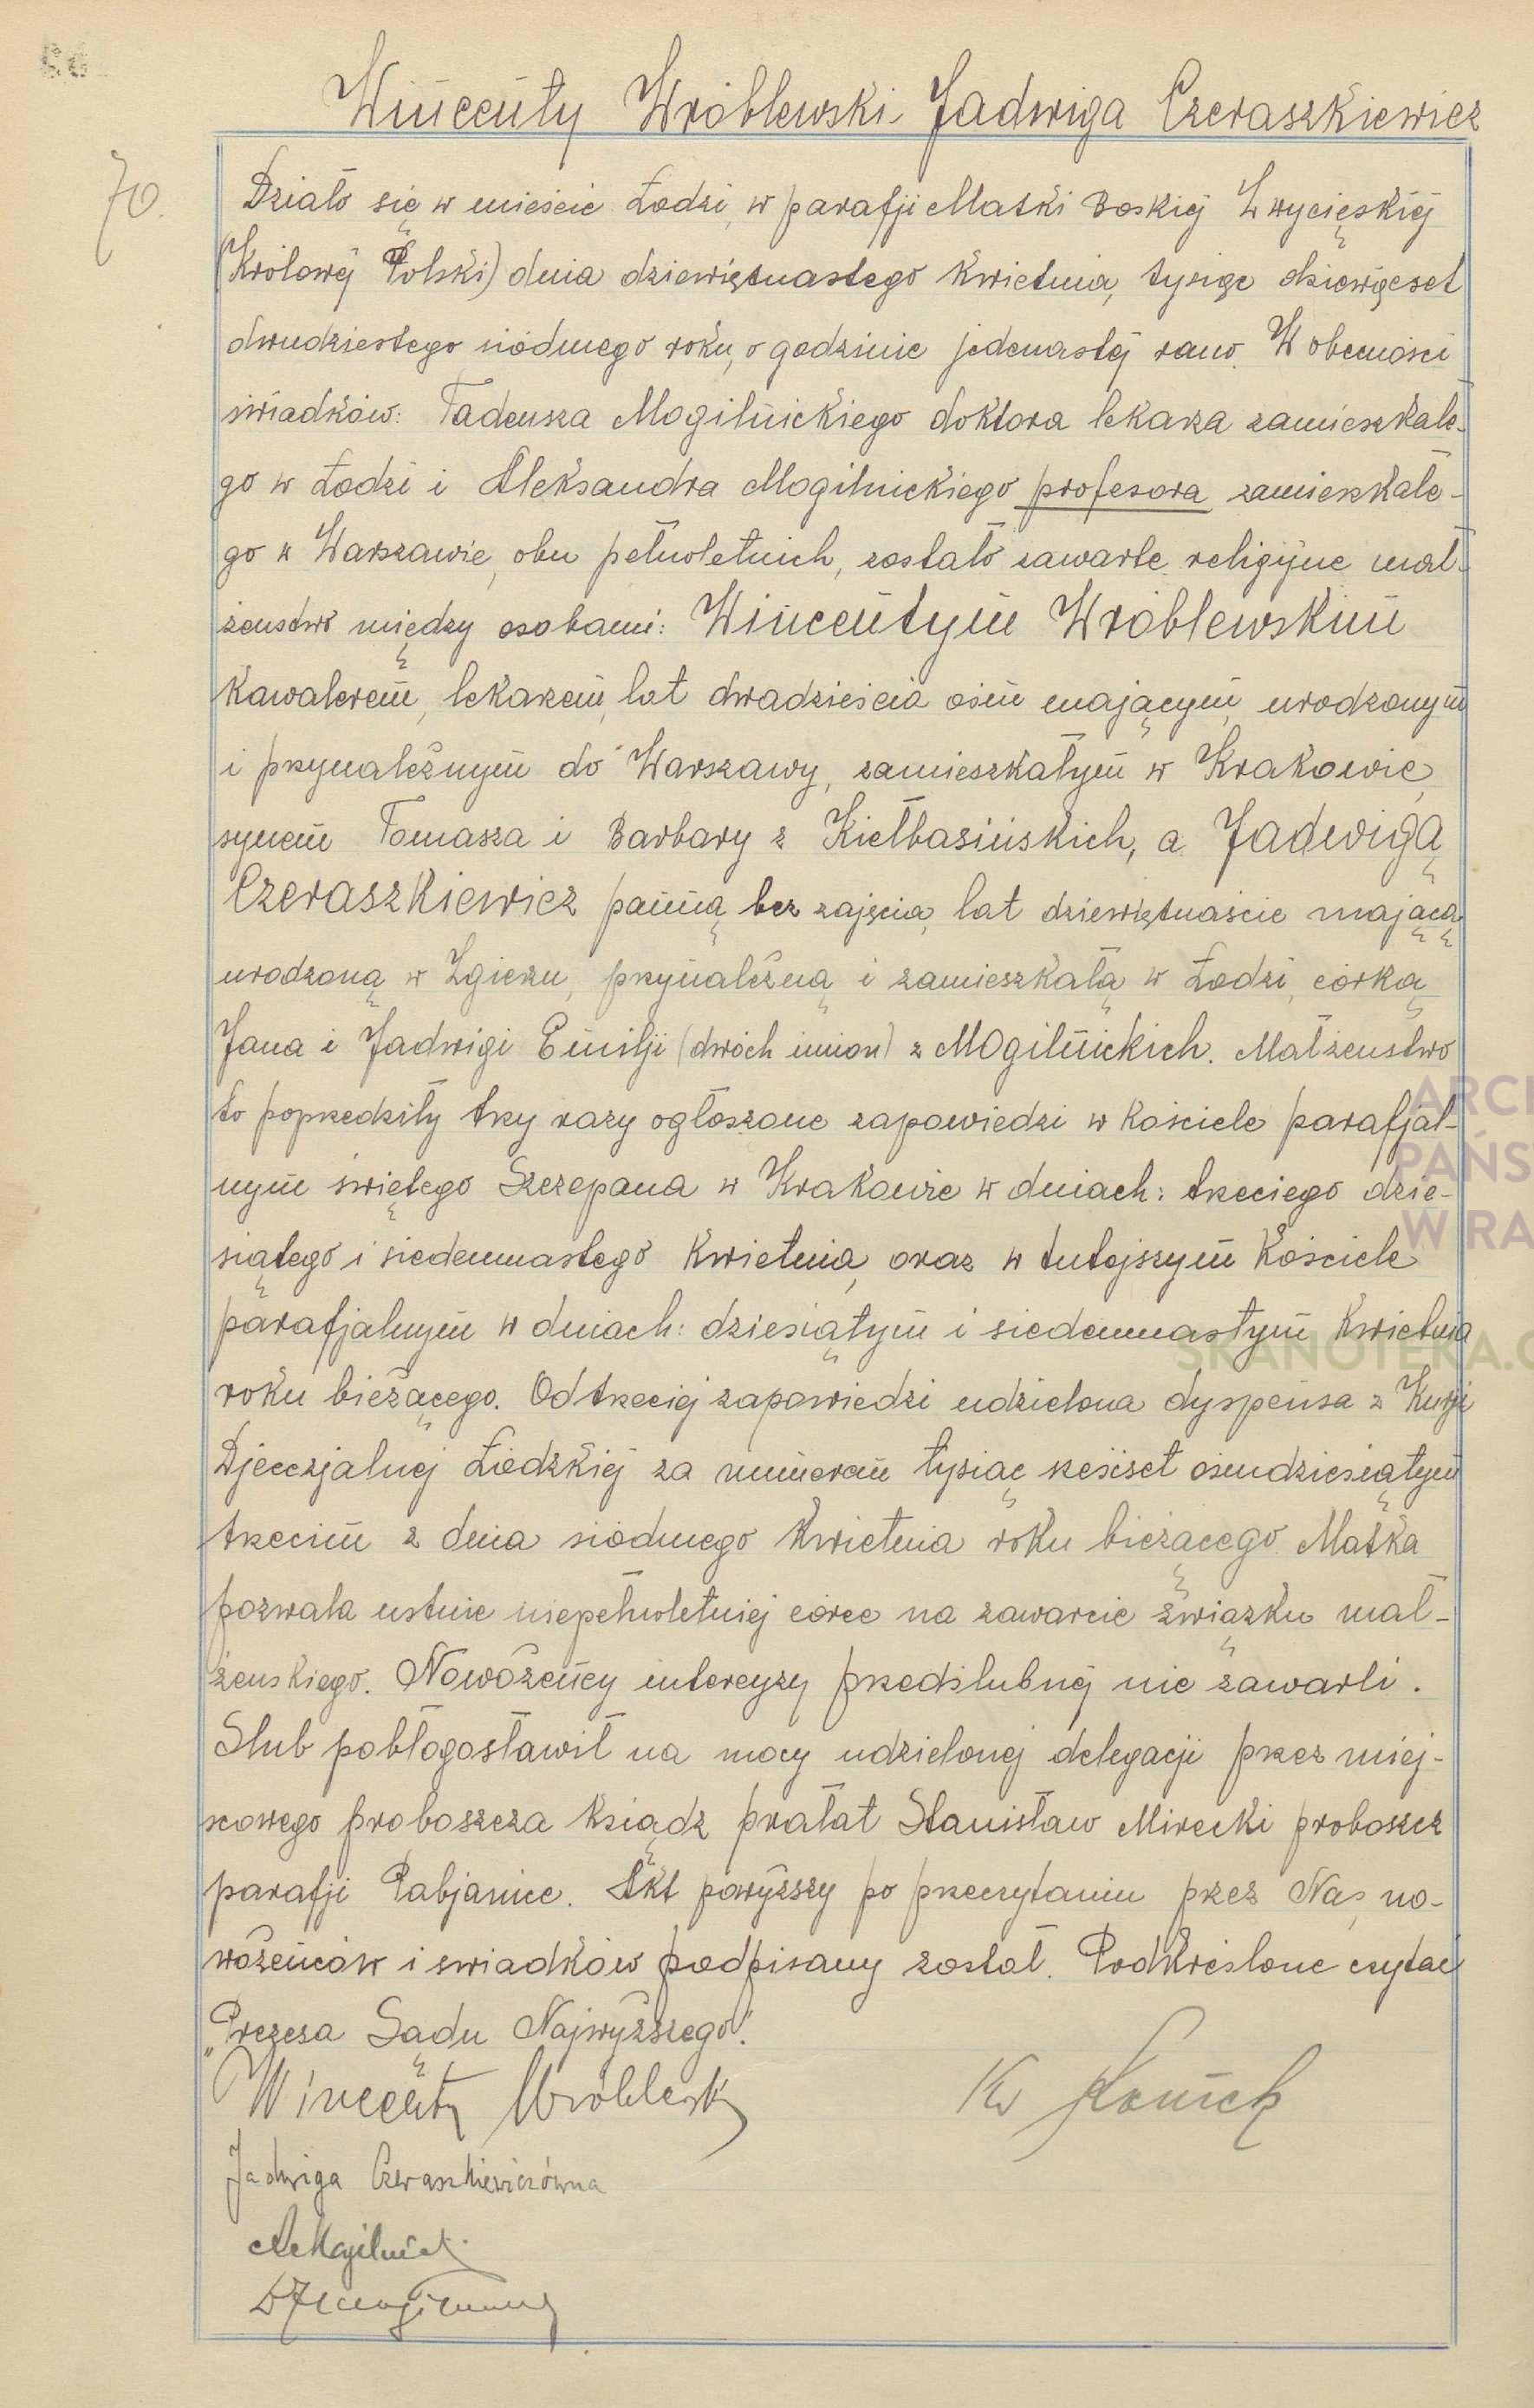 Wincenty Wróblewski Jadwiga Czeraszkiewicz
70.
Działo się w mieście Łodzi, w parafji Matki Boskiej Zwycięskiej
(Królowej Polski) dnia dziewiętnastego kwietnia, tysiąc dziewięćset
dwudziestego siódmego roku, o godzinie jedenastej rano. W obecności
świadków: Tadeusza Mogilnickiego doktora lekarza zamieszkałe-
go w Łodzi i Aleksandra Mogilnickiego profesora zamieszkałe-
go w Warszawie, obu pełnoletnich, zostało zawarte religijne mał-
żeństwo między osobami: Wincentym Wróblewskim
kawalerem, lekarzem, lat dwadzieścia osiem mającym, urodzonym
i przynależnym do Warszawy, zamieszkałym w Krakowie,
synem Tomasza i Barbary z Kiełbasińskich, a Jadwigą
Czeraszkiewicz panną bez zajęcia, lat dziewiętnaście mającą
urodzoną w Zgierzu, przynależną i zamieszkałą w Łodzi, córką
Jana i Jadwigi Emilji (dwóch imion) z Mogilnickich. Małżeństwo
to poprzedziły trzy razy ogłoszone zapowiedzi w kościele parafjal-
nym świętego Szczepana w Krakowie w dniach: trzeciego dzie-
siątego i siedemnastego kwietnia, oraz w tutejszym kościele
parafjalnym w dniach: dziesiątym i siedemnastym kwietnia
roku bieżącego. Od trzeciej zapowiedzi udzielona dyspensa z Kurji
Djecezjalnej Łódzkiej za numerem tysiąc sześćset osiemdziesiątym
trzecim z dnia siódmego kwietnia roku bieżącego. Matka
pozwala ustnie niepełnoletniej córce na zawarcie związku mał-
żeńskiego. Nowożeńcy intercyzy przedślubnej nie zawarli.
Ślub pobłogosławił na mocy udzielonej delegacji przez miej-
scowego proboszcza ksiądz prałat Stanisław Mirecki proboszcz
parafji Pabjanice. Akt powyższy po przeczytaniu przez Nas, no-
wożeńców i świadków podpisany został. Podkreślone czytać
"Prezesa Sądu Najwyższego".
Wincenty Wróblewski
Jadwiga Czeraszkiewiczówna
A Mogilnicki
ARCH
PAŃS
W RA
SKANOTEKA.G